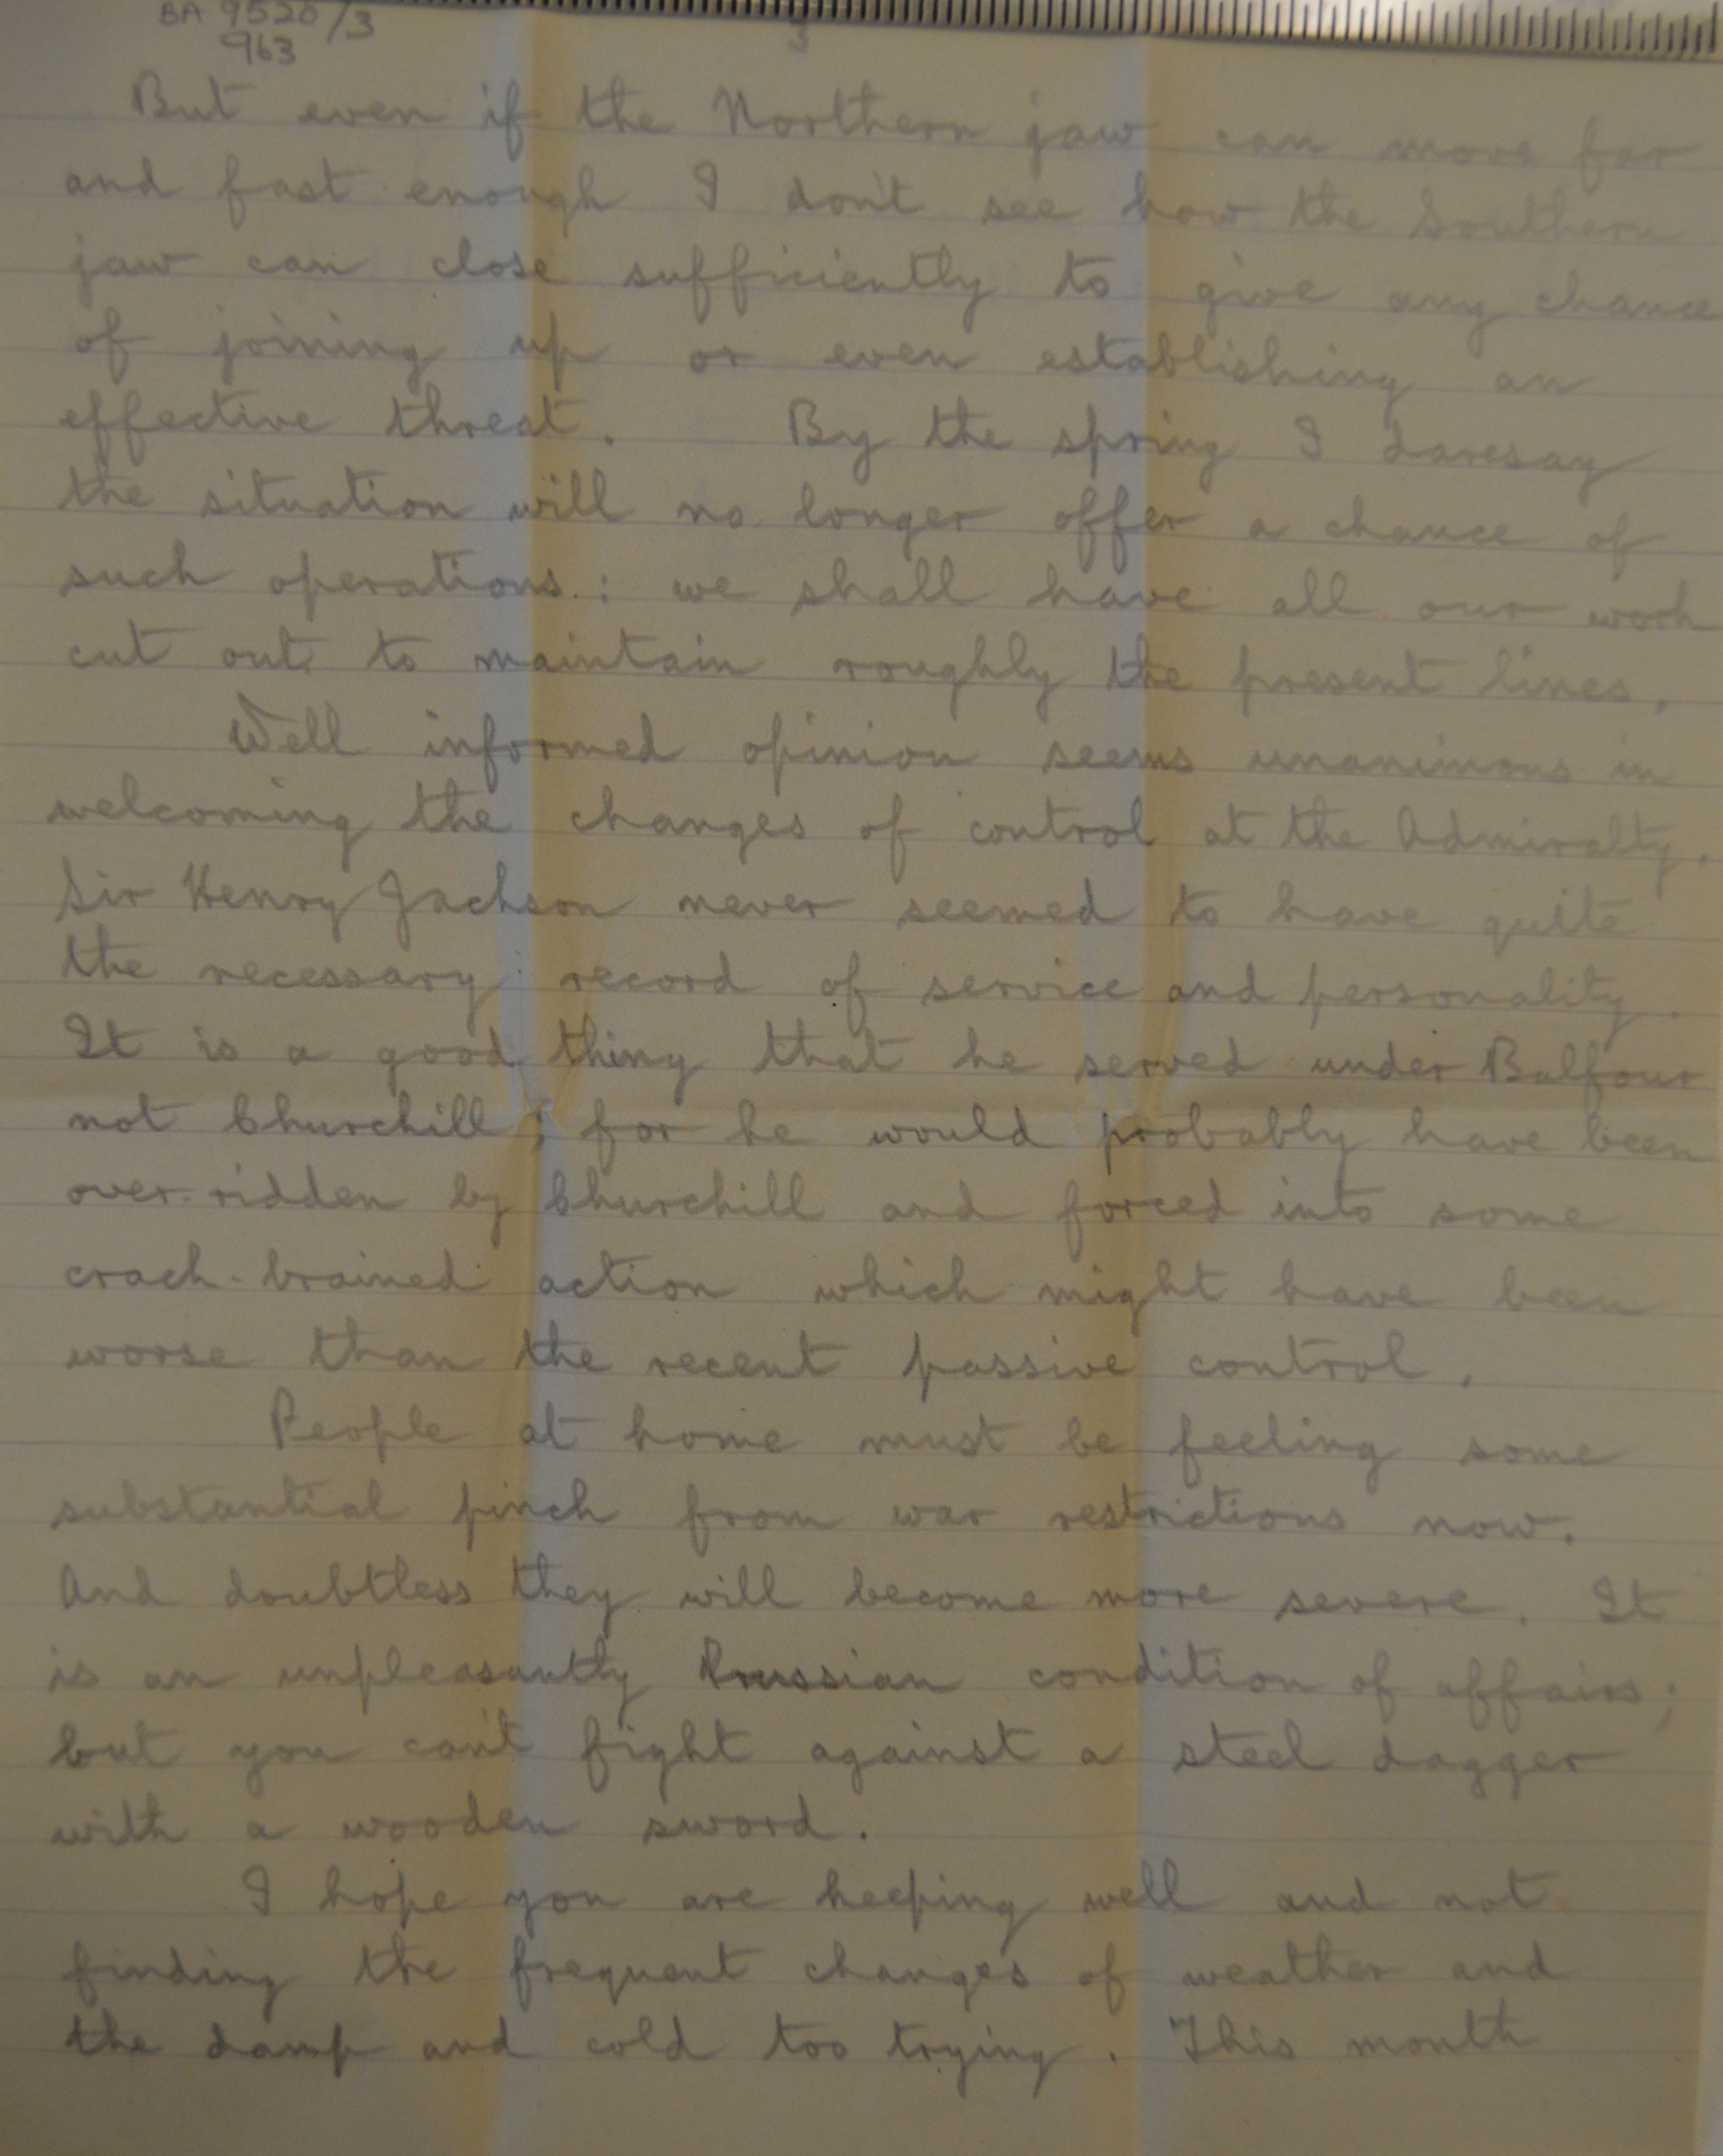 BA 9520/3
963
3
But even if the Northern jaw can move far
and fast enough I don't see how the Southern
jaw can close sufficiently to give any chance
of joining up or even establishing an
effective threat. By the spring I daresay
the situation will no longer offer a chance of
such operations: we shall have all our work
cut out to maintain roughly the present lines.
Well informed opinion seems unanimous in
welcoming the changes of control at the Admiralty.
Sir Henry Jackson never seemed to have quite
the necessary record of service and personality.
It is a good thing that he served under Balfour
not Churchill; for he would probably have been
over-ridden by Churchill and forced into some
crack-brained action which might have been
worse than the recent passive control.
People at home must be feeling some
substantial pinch from war restrictions now.
And doubtless they will become more severe. It
is an unpleasantly Prussian condition of affairs;
but you can't fight against a steel dagger
with a wooden sword.
I hope you are keeping well and not
finding the frequent changes of weather and
the damp and cold too trying. This month